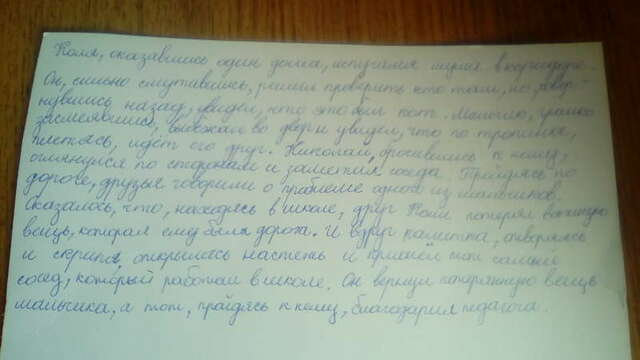 Коля, оказавшись один дома, испугался шума в коридоре.
Он, сильно смутившись, решил проверить кто там, но, повер-
нувшись назад, увидел, что это был кот. Мальчик, громко
засмеявшись, выбежал во двор и увидел, что по тропинке,
плетясь, идёт его друг. Николай, бросившись к нему,
оглянулся по сторонам и заметил соседа. Пройдясь по
дороге, друзья говорили о проблеме одного из мальчиков.
Оказалось, что, находясь в школе, друг Коли потерял
вещь, которая ему была дорога. И вдруг калитка, отворяясь
и скрипя, открылась настежь и пришёл тот самый
сосед, который работал в школе. Он вернул потерянную вещь
мальчика, а тот, пройдясь к нему, благодарил педагога.